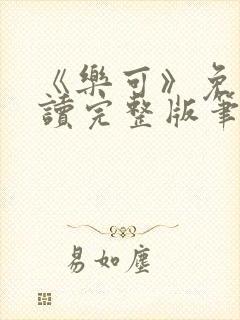 《樂可》免
讀完整版筆
易如塵